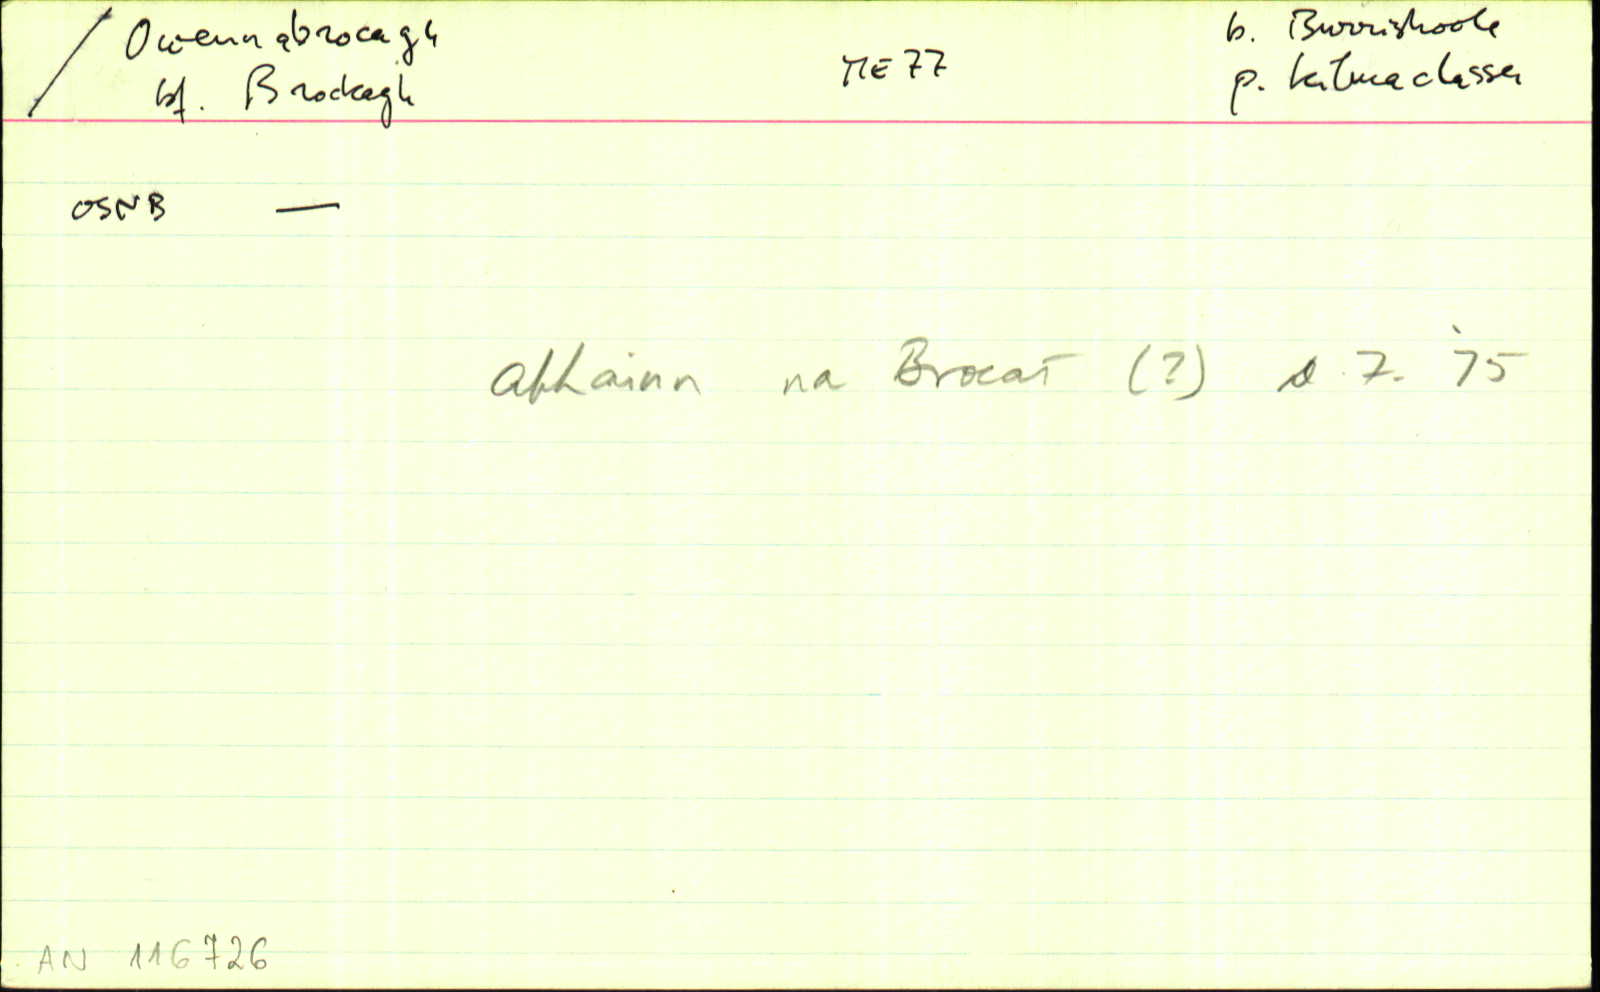 Owennabrocagh
bf. Brockagh
ME 77
b. Burrishoole
p. Kilmaclasser
OSNB —
abhainn na Brocaí (?) 7. '75
AN 116726